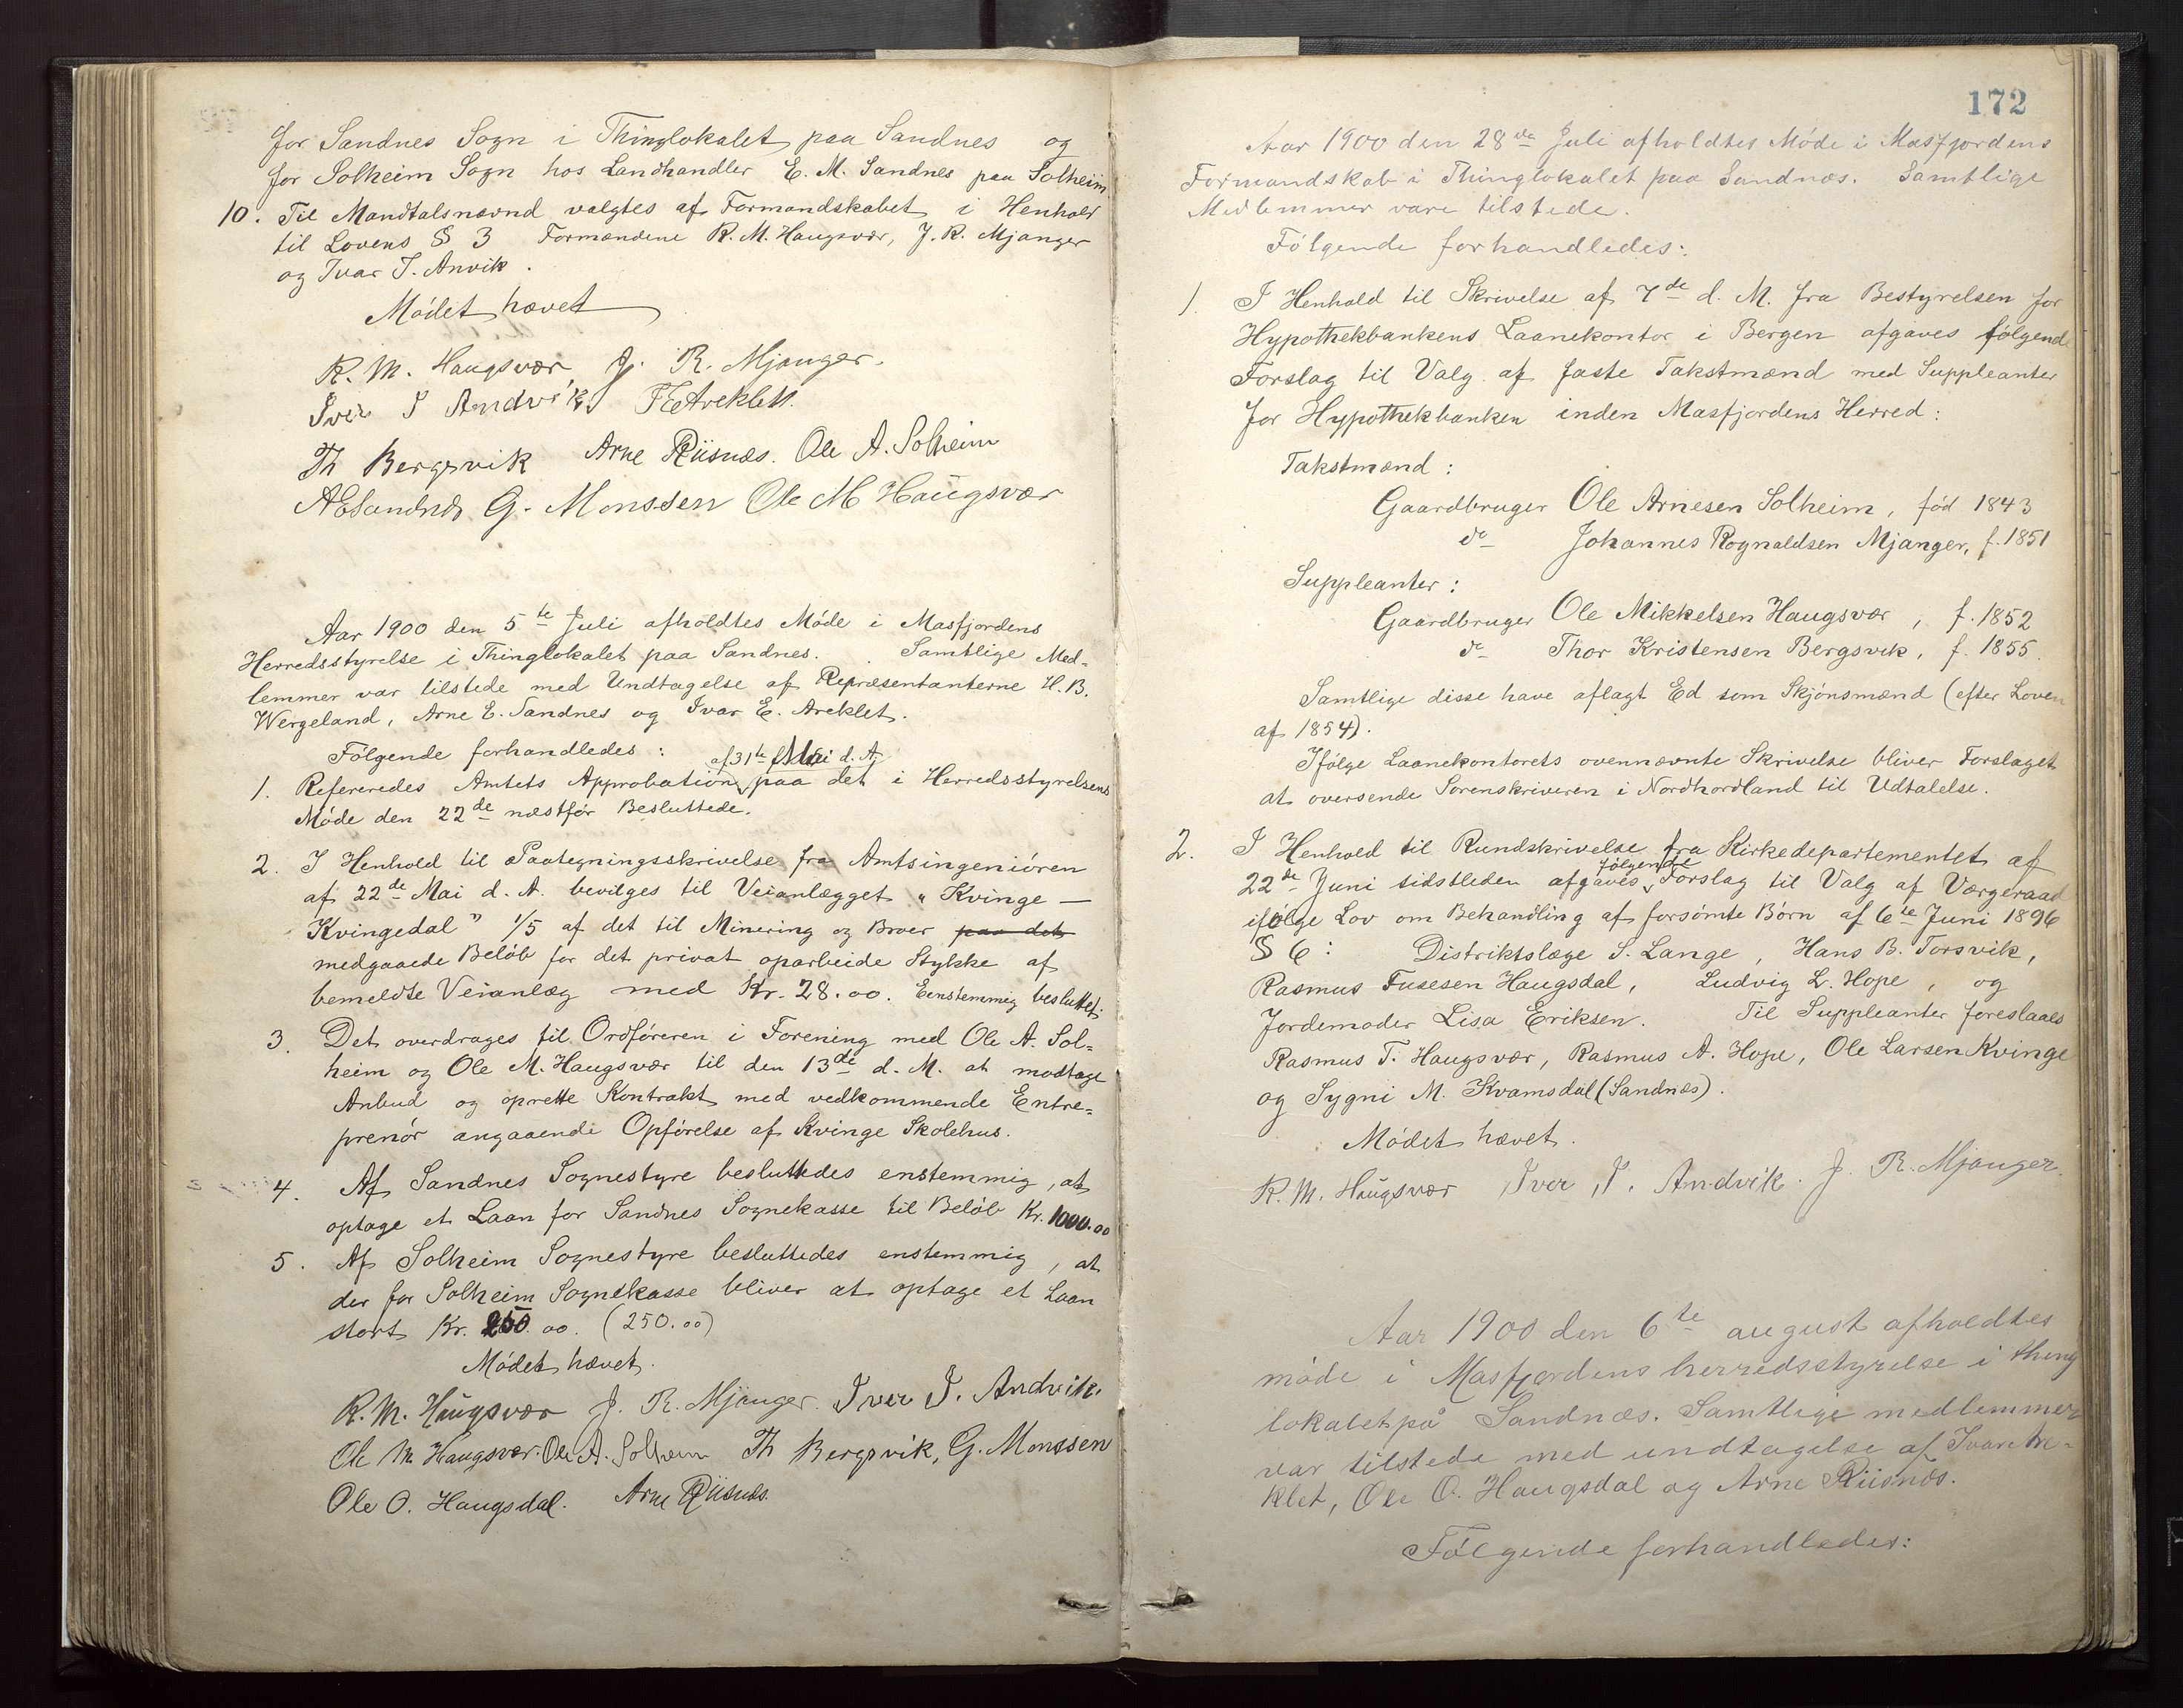 for Sandnes Sogn i Thinglokalet paa Sandnes og
for Solheim Sogn hos Landhandler E. M. Sandnes paa Solheim
10. Til Mandtalsnævnd valgtes af Formandskabet i Henhold
til Lovens § 3 Formændene R. M. Haugsvær, J. R. Mjanger
og Ivar I. Anvik.
Mødet hævet
R. M. Haugsvær J. R. Mjanger.
Iver I Andvik
Th Bergsvik Arne Riisnæs. Ole A. Solheim
G. Monssen Ole M Haugsvær
Aar 1900 den 5te Juli afholdtes Møde i Masfjordens
Herredsstyrelse i Thinglokalet paa Sandnes. Samtlige Med=
lemmer var tilstede med Undtagelse af Repræsentanterne H. B.
Wergeland, Arne E. Sandnes og Ivar E. Areklet.
Følgende forhandledes:
af 31te Mai d. A.
1. Refereredes Amtets Approbation paa det i Herredsstyrelsens
Møde den 22de næstfør Besluttede.
2. I Henhold til Paategningsskrivelse fra Amtsingeniøren
af 22de Mai d. A. bevilges til Veianlægget "Kvinge —
Kvingedal" 1/5 af det til Minering og Broer paa det
medgaaede Beløb for det privat oparbeide Stykke af
bemeldte Veianlæg med Kr. 28.00. Eenstemmig besluttet.
3. Det overdrages til Ordføreren i Forening med Ole A. Sol=
heim og Ole M. Haugsvær til den 13de d. M. at modtage
Anbud og oprette Kontrakt med vedkommende Entre=
prenør angaaende Opførelse af Kvinge Skolehus.
4. Af Sandnes Sognestyre besluttedes enstemmig, at
optage et Laan for Sandnes Sognekasse til Beløb Kr. 1000.00
5. Af Solheim Sognestyre besluttedes enstemmig, at
der for Solheim Sognekasse bliver at optage et Laan
stort Kr. 250.00. (250.00)
Mødet hævet.
R. M. Haugsvær J. R. Mjanger. Iver I. Andvik.
Ole M Haugsvær. Ole A. Solheim Th Bergsvik, G. Monssen
Ole O. Haugsdal. Arne Riisnæs.
172
Aar 1900 den 28de Juli afholdtes Møde i Masfjordens
Formandskab i Thinglokalet paa Sandnæs. Samtlige
Medlemmer vare tilstede.
Følgende forhandledes:
1. I Henhold til Skrivelse af 7de d. M. fra Bestyrelsen for
Hypothekbankens Laanekontor i Bergen afgaves følgende
Forslag til Valg af faste Takstmænd med Suppleanter
for Hypothekbanken inden Masfjordens Herred:
Takstmænd:
Gaardbruger Ole Arnesen Solheim, fød 1843
do Johannes Rognaldsen Mjanger, f. 1851
Suppleanter:
Gaardbruger Ole Mikkelsen Haugsvær, f. 1852
do Thor Kristensen Bergsvik, f. 1855.
Samtlige disse have aflagt Ed som Skjønsmænd (efter Loven
af 1854).
Ifølge Laanekontorets ovennævnte Skrivelse bliver Forslaget
at oversende Sorenskriveren i Nordhordland til Udtalelse.
2. I Henhold til Rundskrivelse fra Kirkedepartementet af
følgende
22de Juni sidstleden afgaves Forslag til Valg af Værgeraad
ifølge Lov om Behandling af forsømte Børn af 6te Juni 1896
§ 6: Distriktslæge S. Lange, Hans B. Torsvik,
Rasmus Fusesen Haugsdal, Ludvig L. Hope, og
Jordemoder Lisa Eriksen. Til Suppleanter foreslaaes
Rasmus T. Haugsvær, Rasmus A. Hope, Ole Larsen Kvinge
og Sygni M. Kvamsdal (Sandnæs).
Mødet hævet.
R. M. Haugsvær Iver I. Andvik. J. R. Mjanger.
Aar 1900 den 6te august afholdtes
møde i Masfjordens herredsstyrelse i thing
lokalet på Sandnæs. Samtlige medlemmer
var tilstede med undtagelse af Ivar Are=
klet, Ole O. Haugsdal og Arne Riisnæs.
Følgende forhandledes: